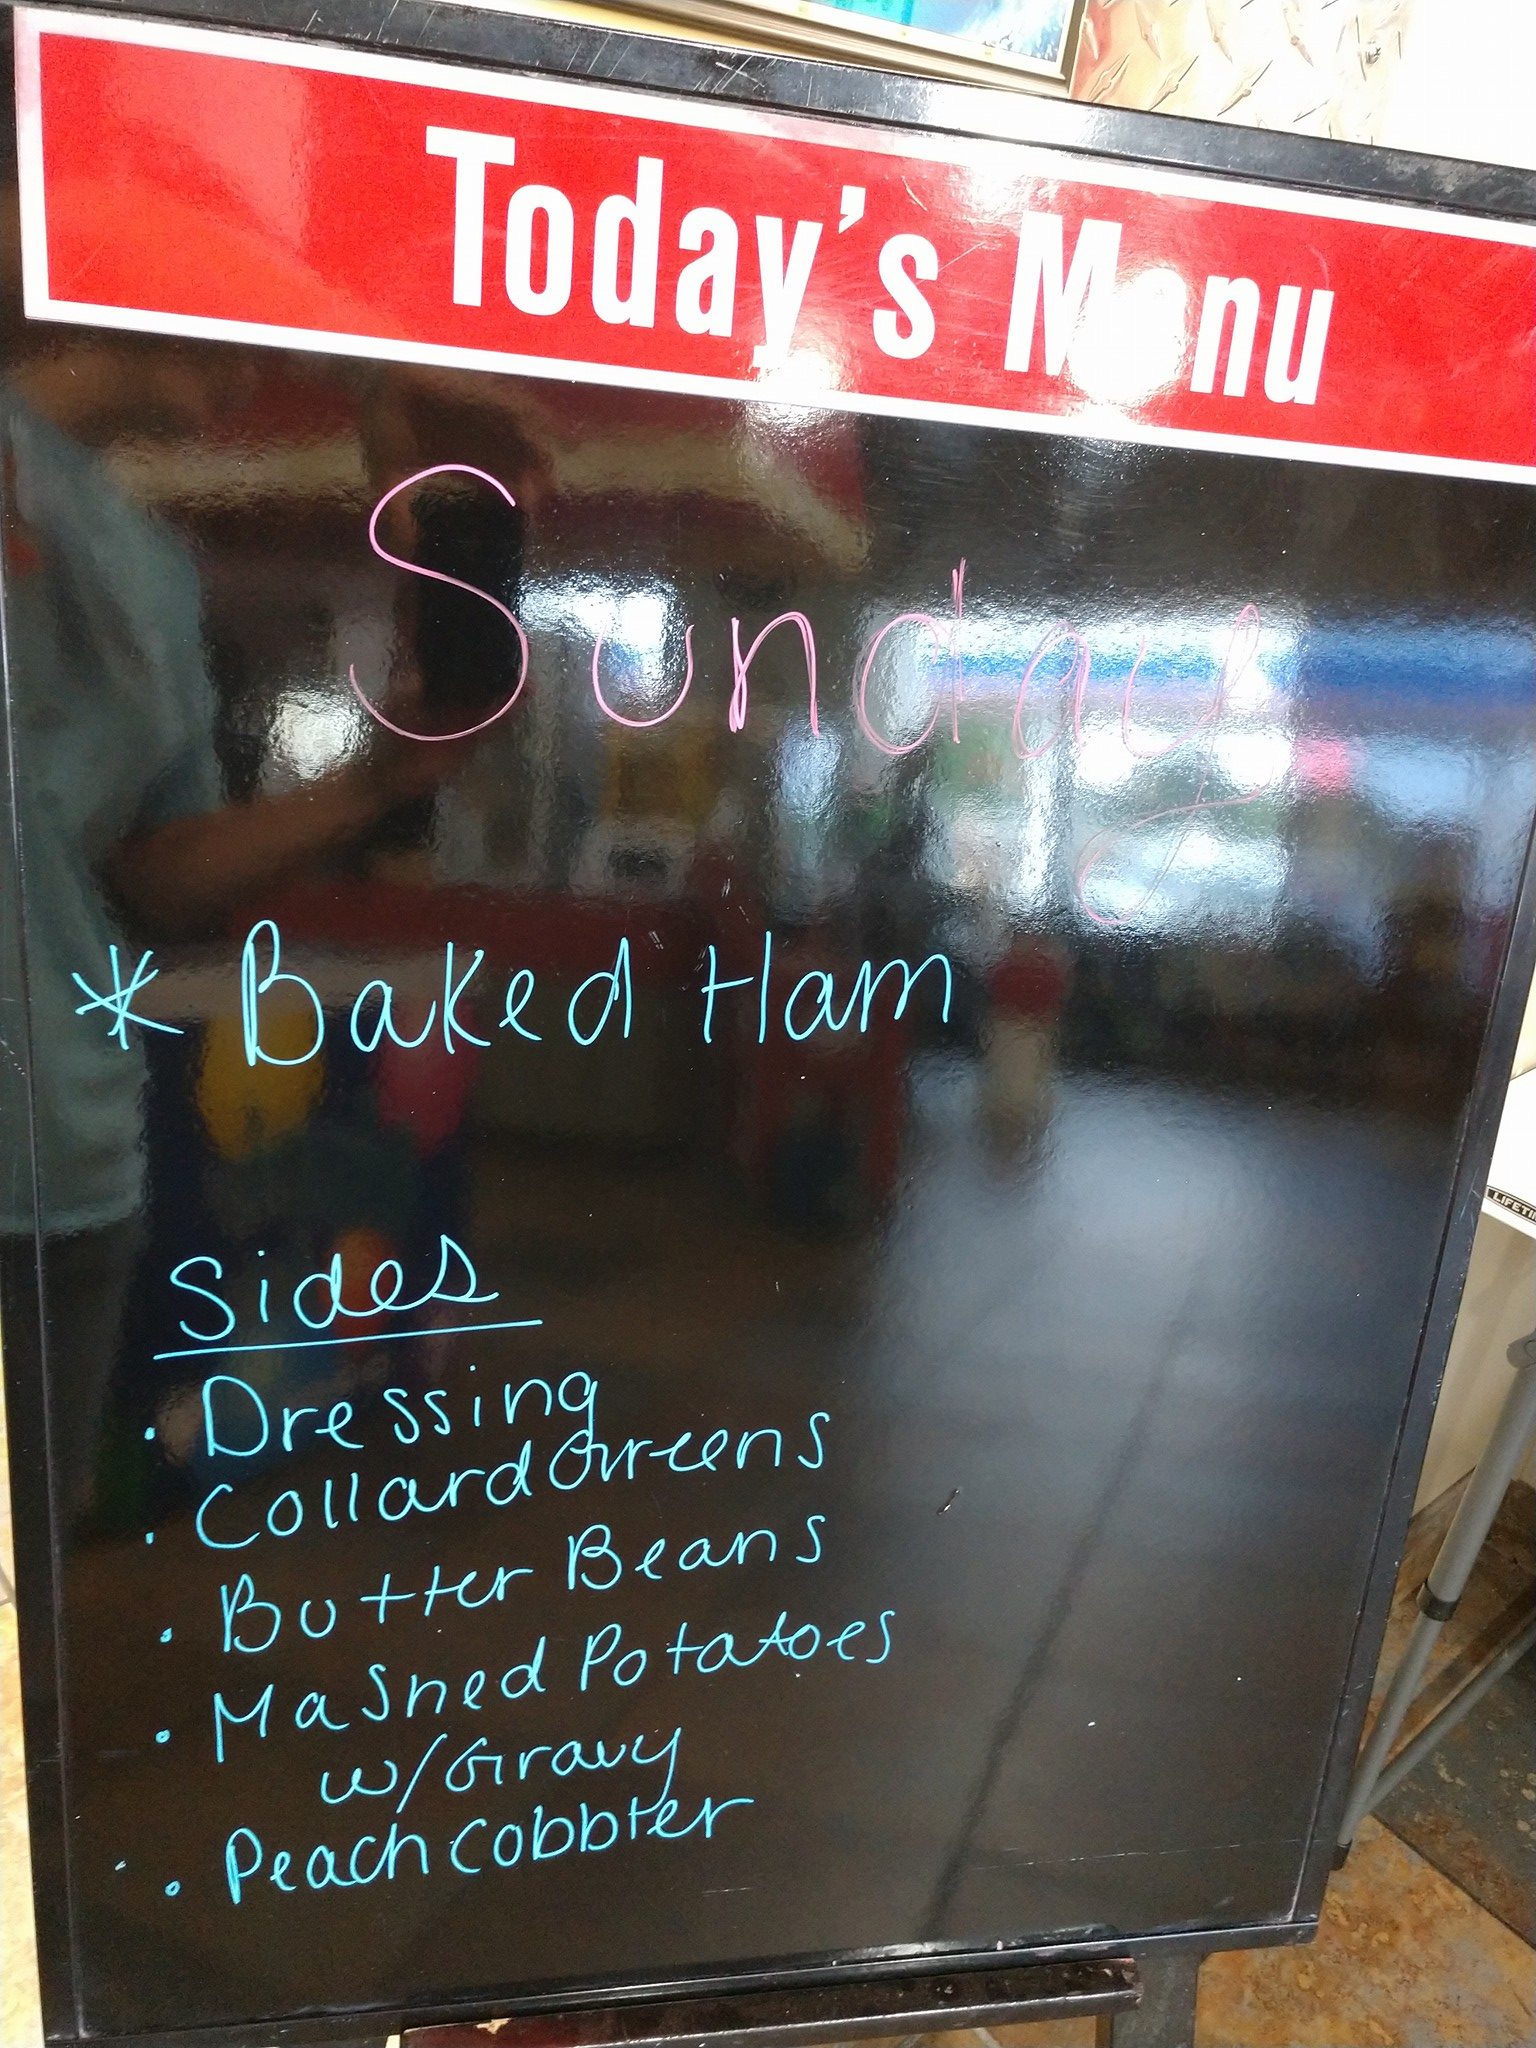 Today's Menu
Sunday
* Baked Ham
Sides
• Dressing
• Collard Greens
• Butter Beans
• Mashed Potatoes
w/Gravy
• Peach Cobbler